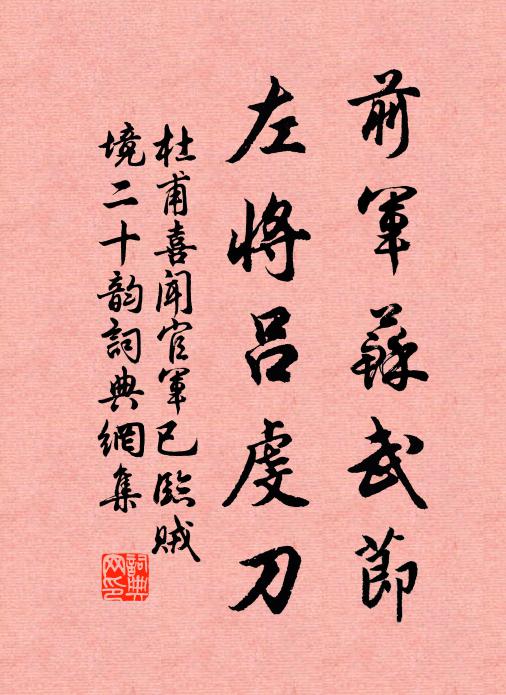 前軍蘇武節
左將呂虔刀
杜甫喜聞官軍已臨賊
境二十韵詞典網集
詞典网印